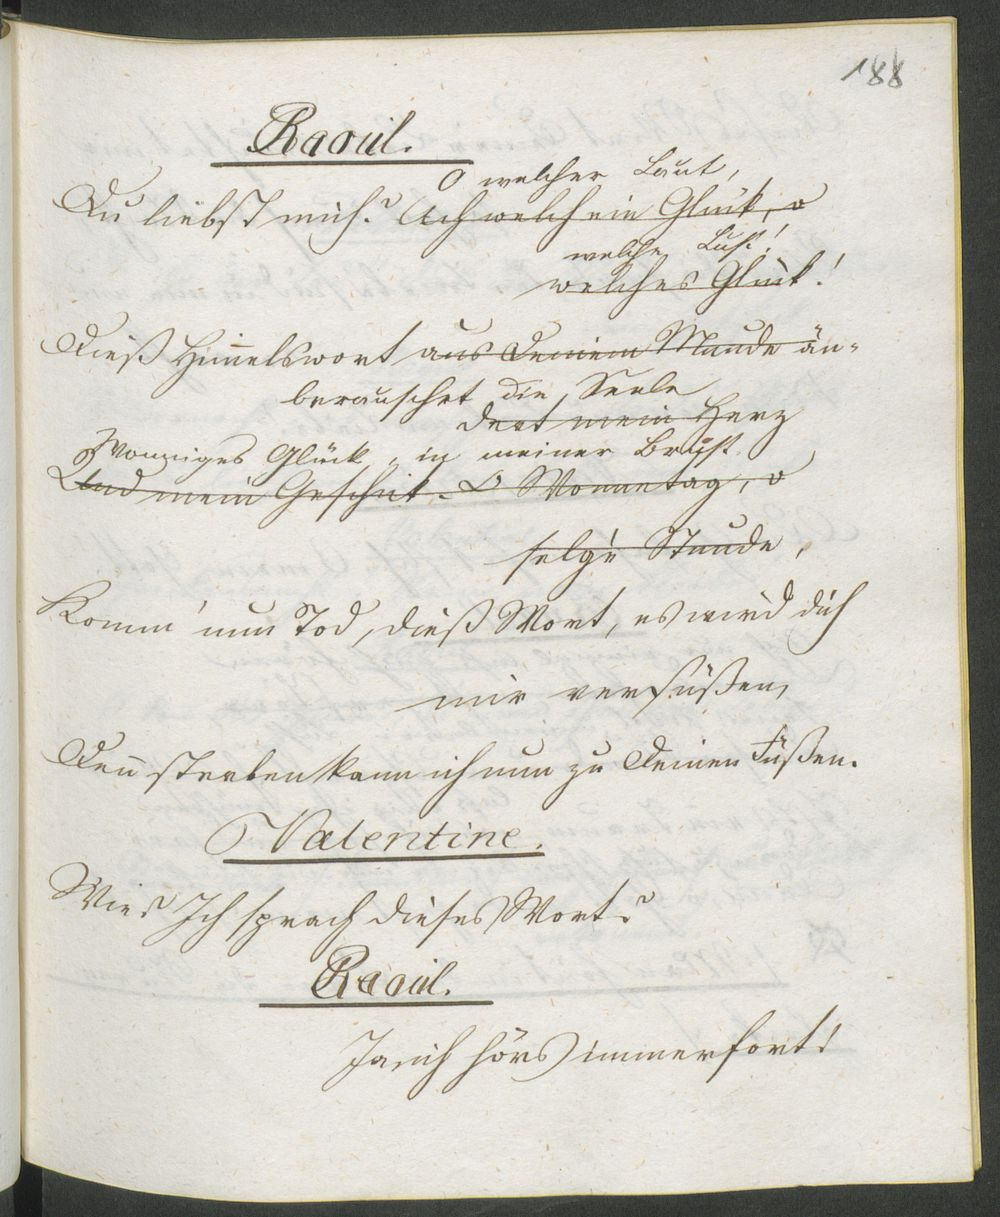 188
Raoul.
O welcher Laut,
Du liebst mich? Ach welch ein Glük, o
welche Lust!
welches Glük!
Dieß Himmelswort aus Deinem Munde än-
berauschet die Seele
dert mein Herz
Wonniges Glück, in meiner Brust.
Und mein Geschik. O Wonnetag, o
sel'ge Stunde,
Komm' nun Tod, dieß Wort, es wird dich
mir versüßen,
Denn sterben kann ich nun zu Deinen Füßen.
Valentine.
Wie? Ich sprach dieses Wort?
Raoul.
Ja, ich hörs immerfort!